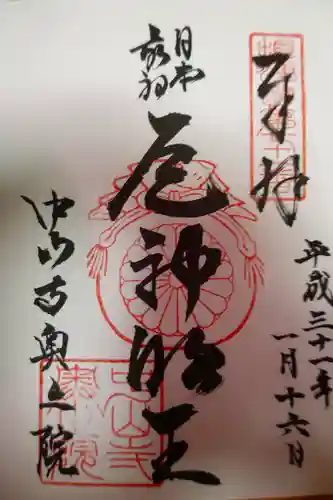 奉拝
平成三十一年
一月十六日
日本
最初
厄神明王
中山寺奥之院